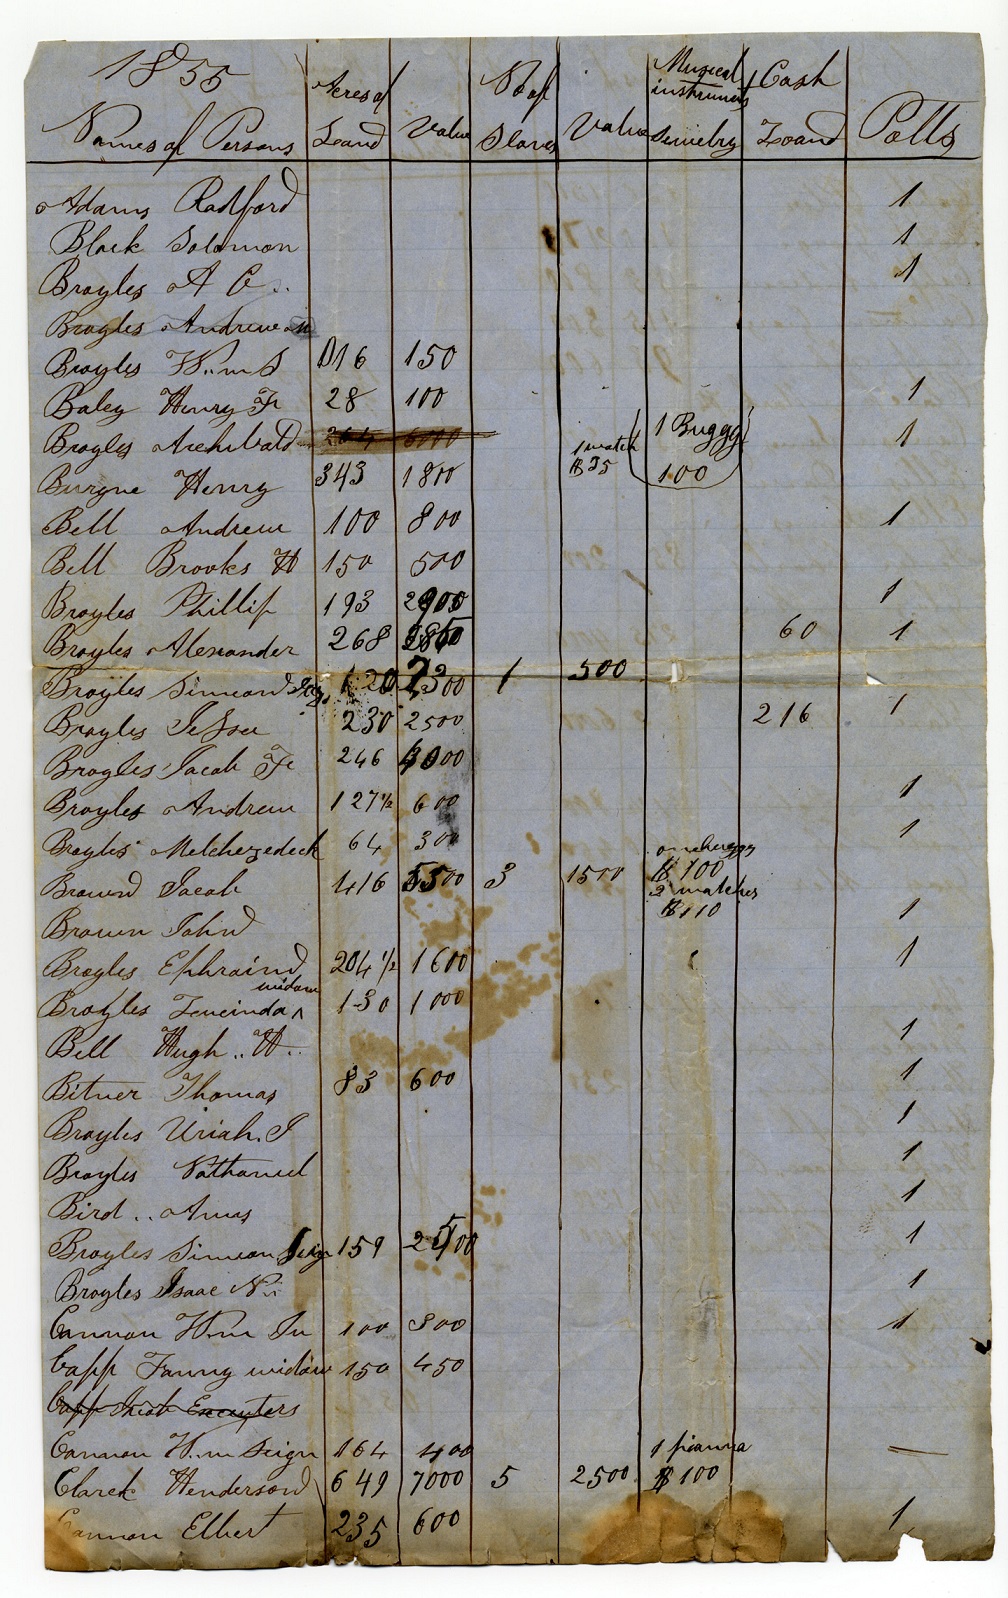 1855
Names of Persons Acres of Land Value No of Slaves Value Musical instruments Jewelry Cash Loand Polls
Adams Radford 1
Black Solomon 1
Broyles A C .. 1
Broyles Andrew M
Broyles W..m S 116 150
Baley Henry Fr 28 100 1
Broyles Archibald 264 6000 1 watch $35 1 Buggy 100 1
Buryne Henry 343 1800
Bell Andrew 100 800 1
Bell Brooks H 150 500
Broyles Phillip 193 2900 1
Broyles Alexander 268 60 1
Broyles Simeon 120 2300 1 500
Broyles Jessee 230 2500 216 1
Broyles Jacob Fr 246 4000
Broyles Andrew 127 1/2 600 1
Broyles Melchezedeck 64 300 1
Brown Jacob 416 5500 3 1500 one buggy $100 2 watches $110
Brown John 1
Broyles Ephraim 204 1/2 1600 1
Broyles Lucinda ^ widow 130 1000
Bell Hugh .. H .. 1
Bitner Thomas 83 600 1
Broyles Uriah. I 1
Broyles Nathaniel 1
Bird .. Amus 1
Broyles Simeon Seign 159 2500 1
Broyles Isaac N.. 1
Cannon W.m Ju 100 300 1
Capp Fanny widow 150 450
Capp Jacob Executers
Cannon W.m Seign 164 400 1 pianna —
Clarck Henderson 649 7000 5 2500 $100
Cannon Elbert 235 600 1